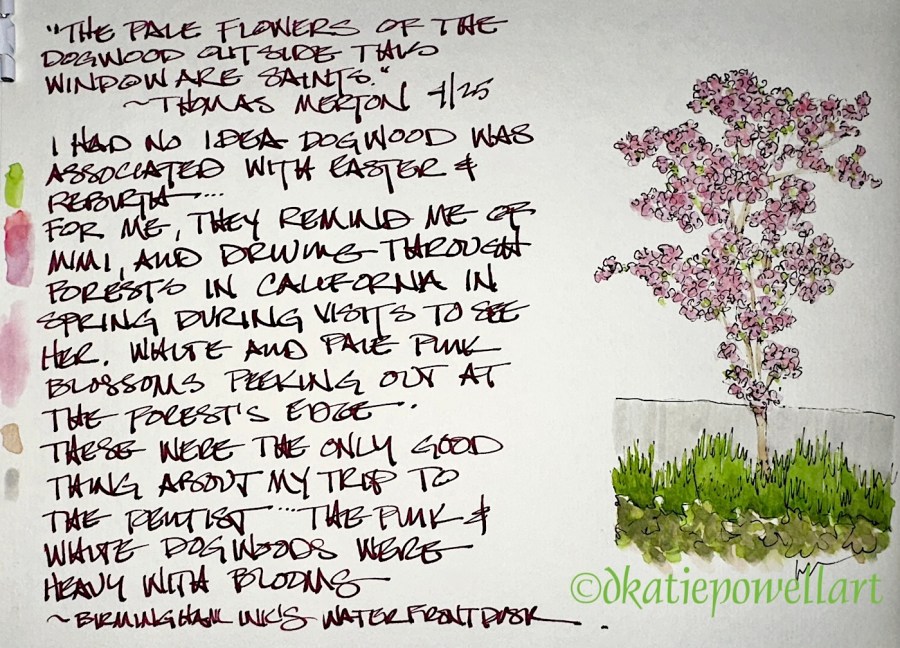 "THE PALE FLOWERS OF THE
DOGWOOD OUTSIDE THIS
WINDOW ARE SAINTS."
~THOMAS MERTON 4/25
I HAD NO IDEA DOGWOOD WAS
ASSOCIATED WITH EASTER &
REBIRTH...
FOR ME, THEY REMIND ME OF
MIMI, AND DRIVING THROUGH
FORESTS IN CALIFORNIA IN
SPRING DURING VISITS TO SEE
HER. WHITE AND PALE PINK
BLOSSOMS PEEKING OUT AT
THE FOREST'S EDGE.
THESE WERE THE ONLY GOOD
THING ABOUT MY TRIP TO
THE DENTIST... THE PINK &
WHITE DOGWOODS WERE
HEAVY WITH BLOOMS
~BIRMINGHAM INK'S WATERFRONT DUSK.
©dkatiepowellart